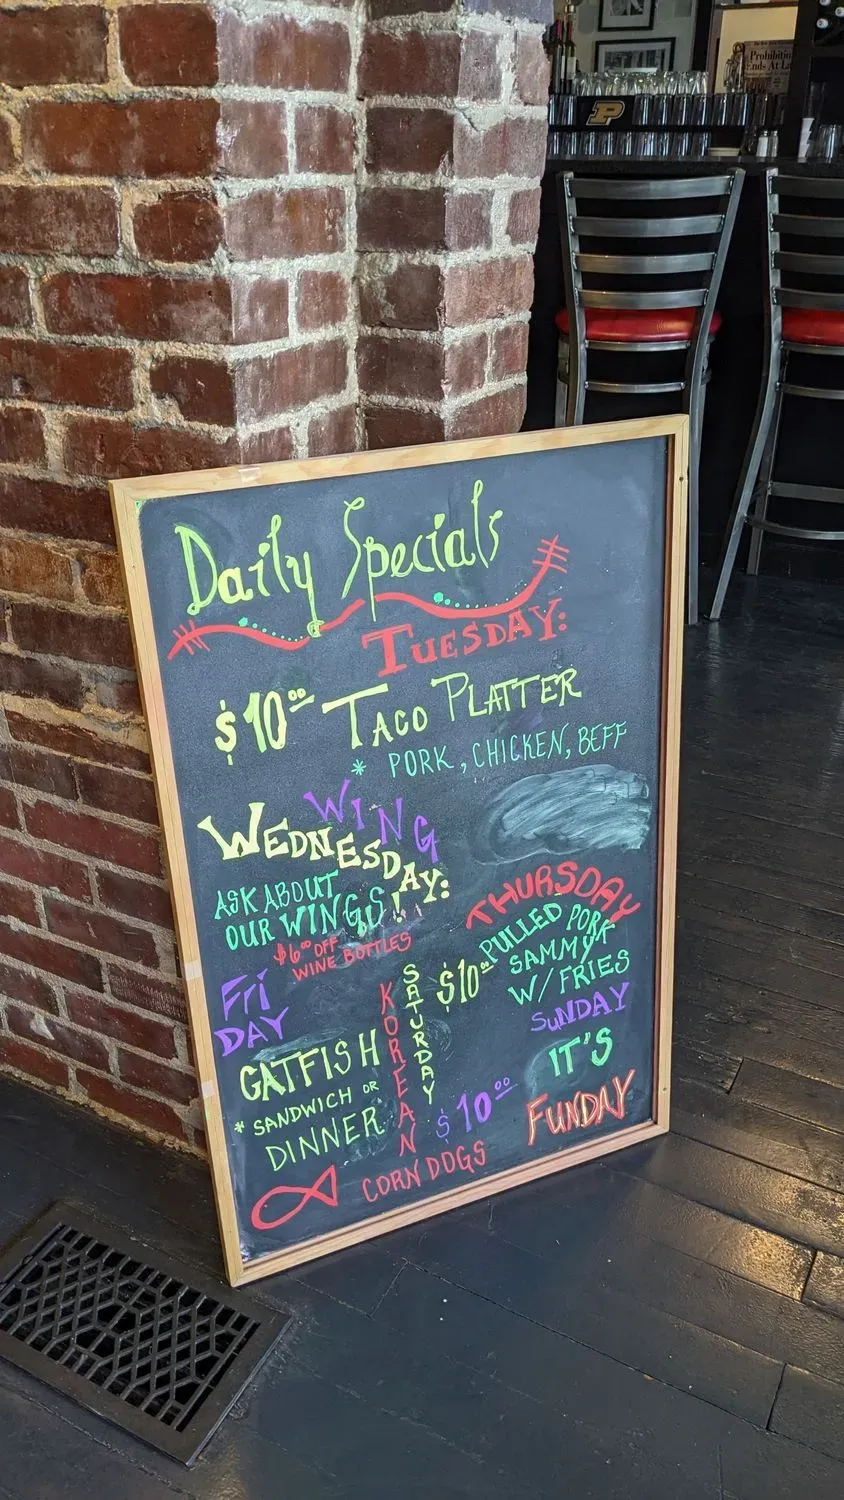 Daily Specials
TUESDAY:
$10.00 TACO PLATTER
* PORK, CHICKEN, BEFF
WING
WEDNESDAY:
ASK ABOUT
OUR WINGS!
$6.00 OFF
WINE BOTTLES
THURSDAY
PULLED PORK
SAMMY
W/ FRIES
$10.00
FRI
DAY
GATFISH
* SANDWICH OR
DINNER
SATURDAY
KOREAN
CORN DOGS
$10.00
SUNDAY
IT'S
FUNDAY
P
Prohibition
Ends At